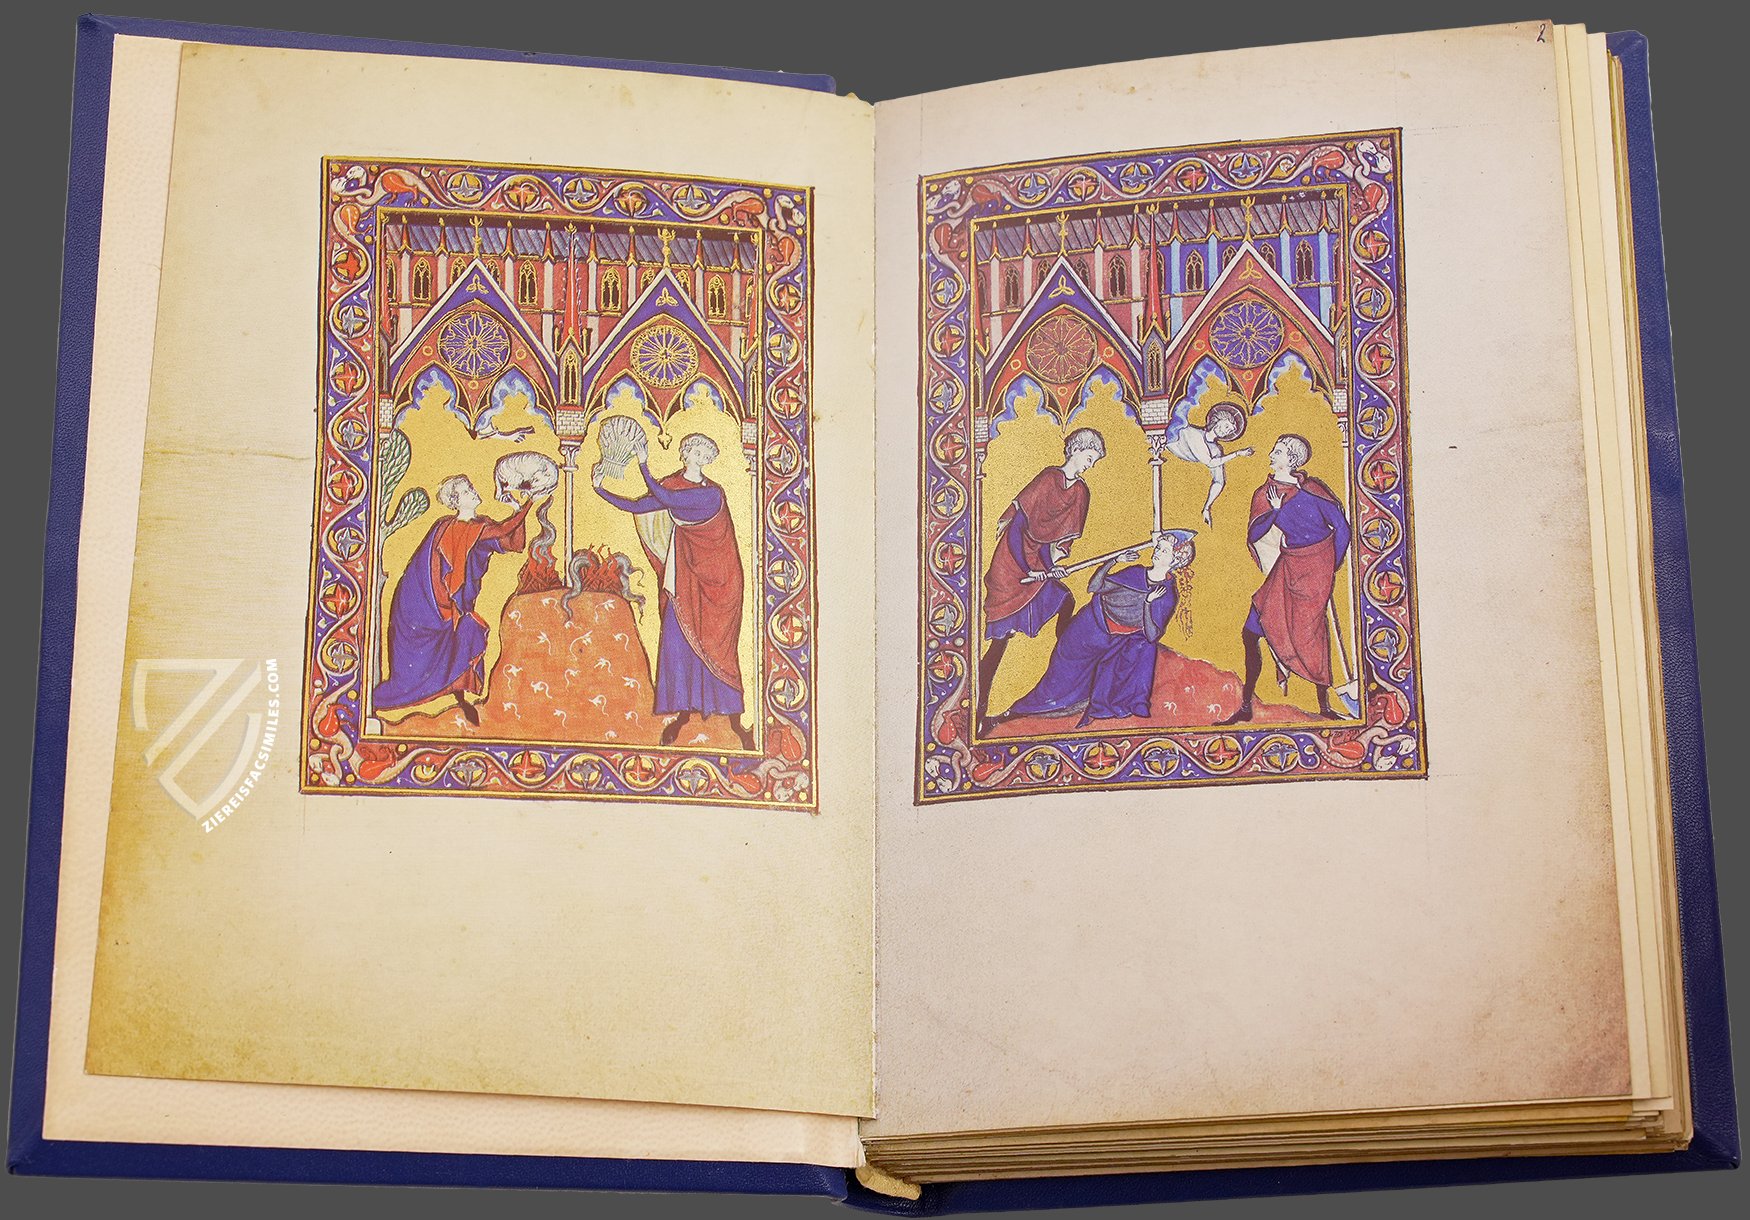 2
ZIEREISFACSIMILES.COM